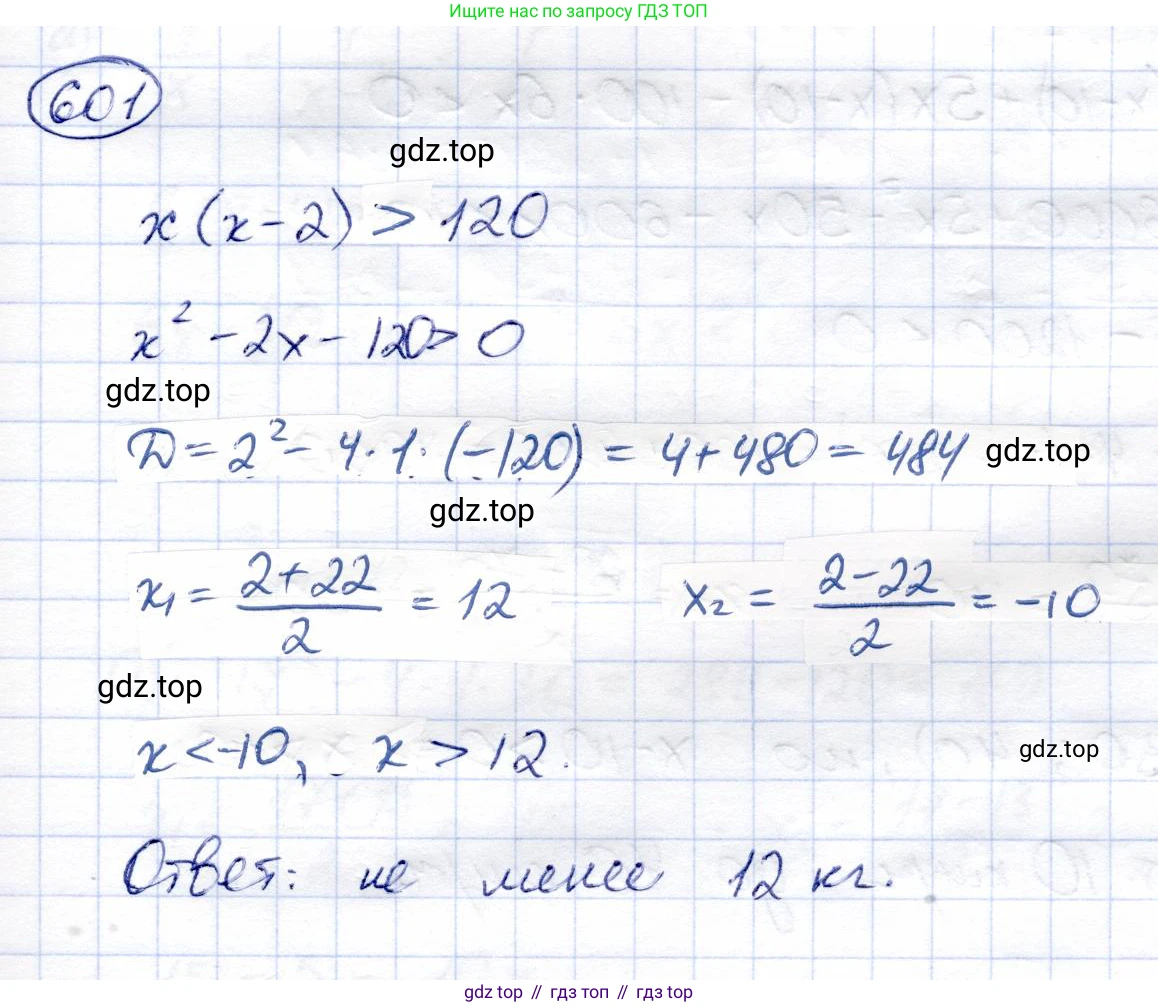 Ищите нас по запросу ГДЗ ТОП
601
gdz.top
x(x-2) > 120
x² - 2x - 120 > 0
gdz.top
D = 2² - 4·1·(-120) = 4+480 = 484 gdz.top
gdz.top
x₁ = (2+22)/2 = 12 x₂ = (2-22)/2 = -10
gdz.top
x < -10, x > 12.
gdz.top
Ответ: не менее 12 кг.
gdz top // гдз топ // gdz top